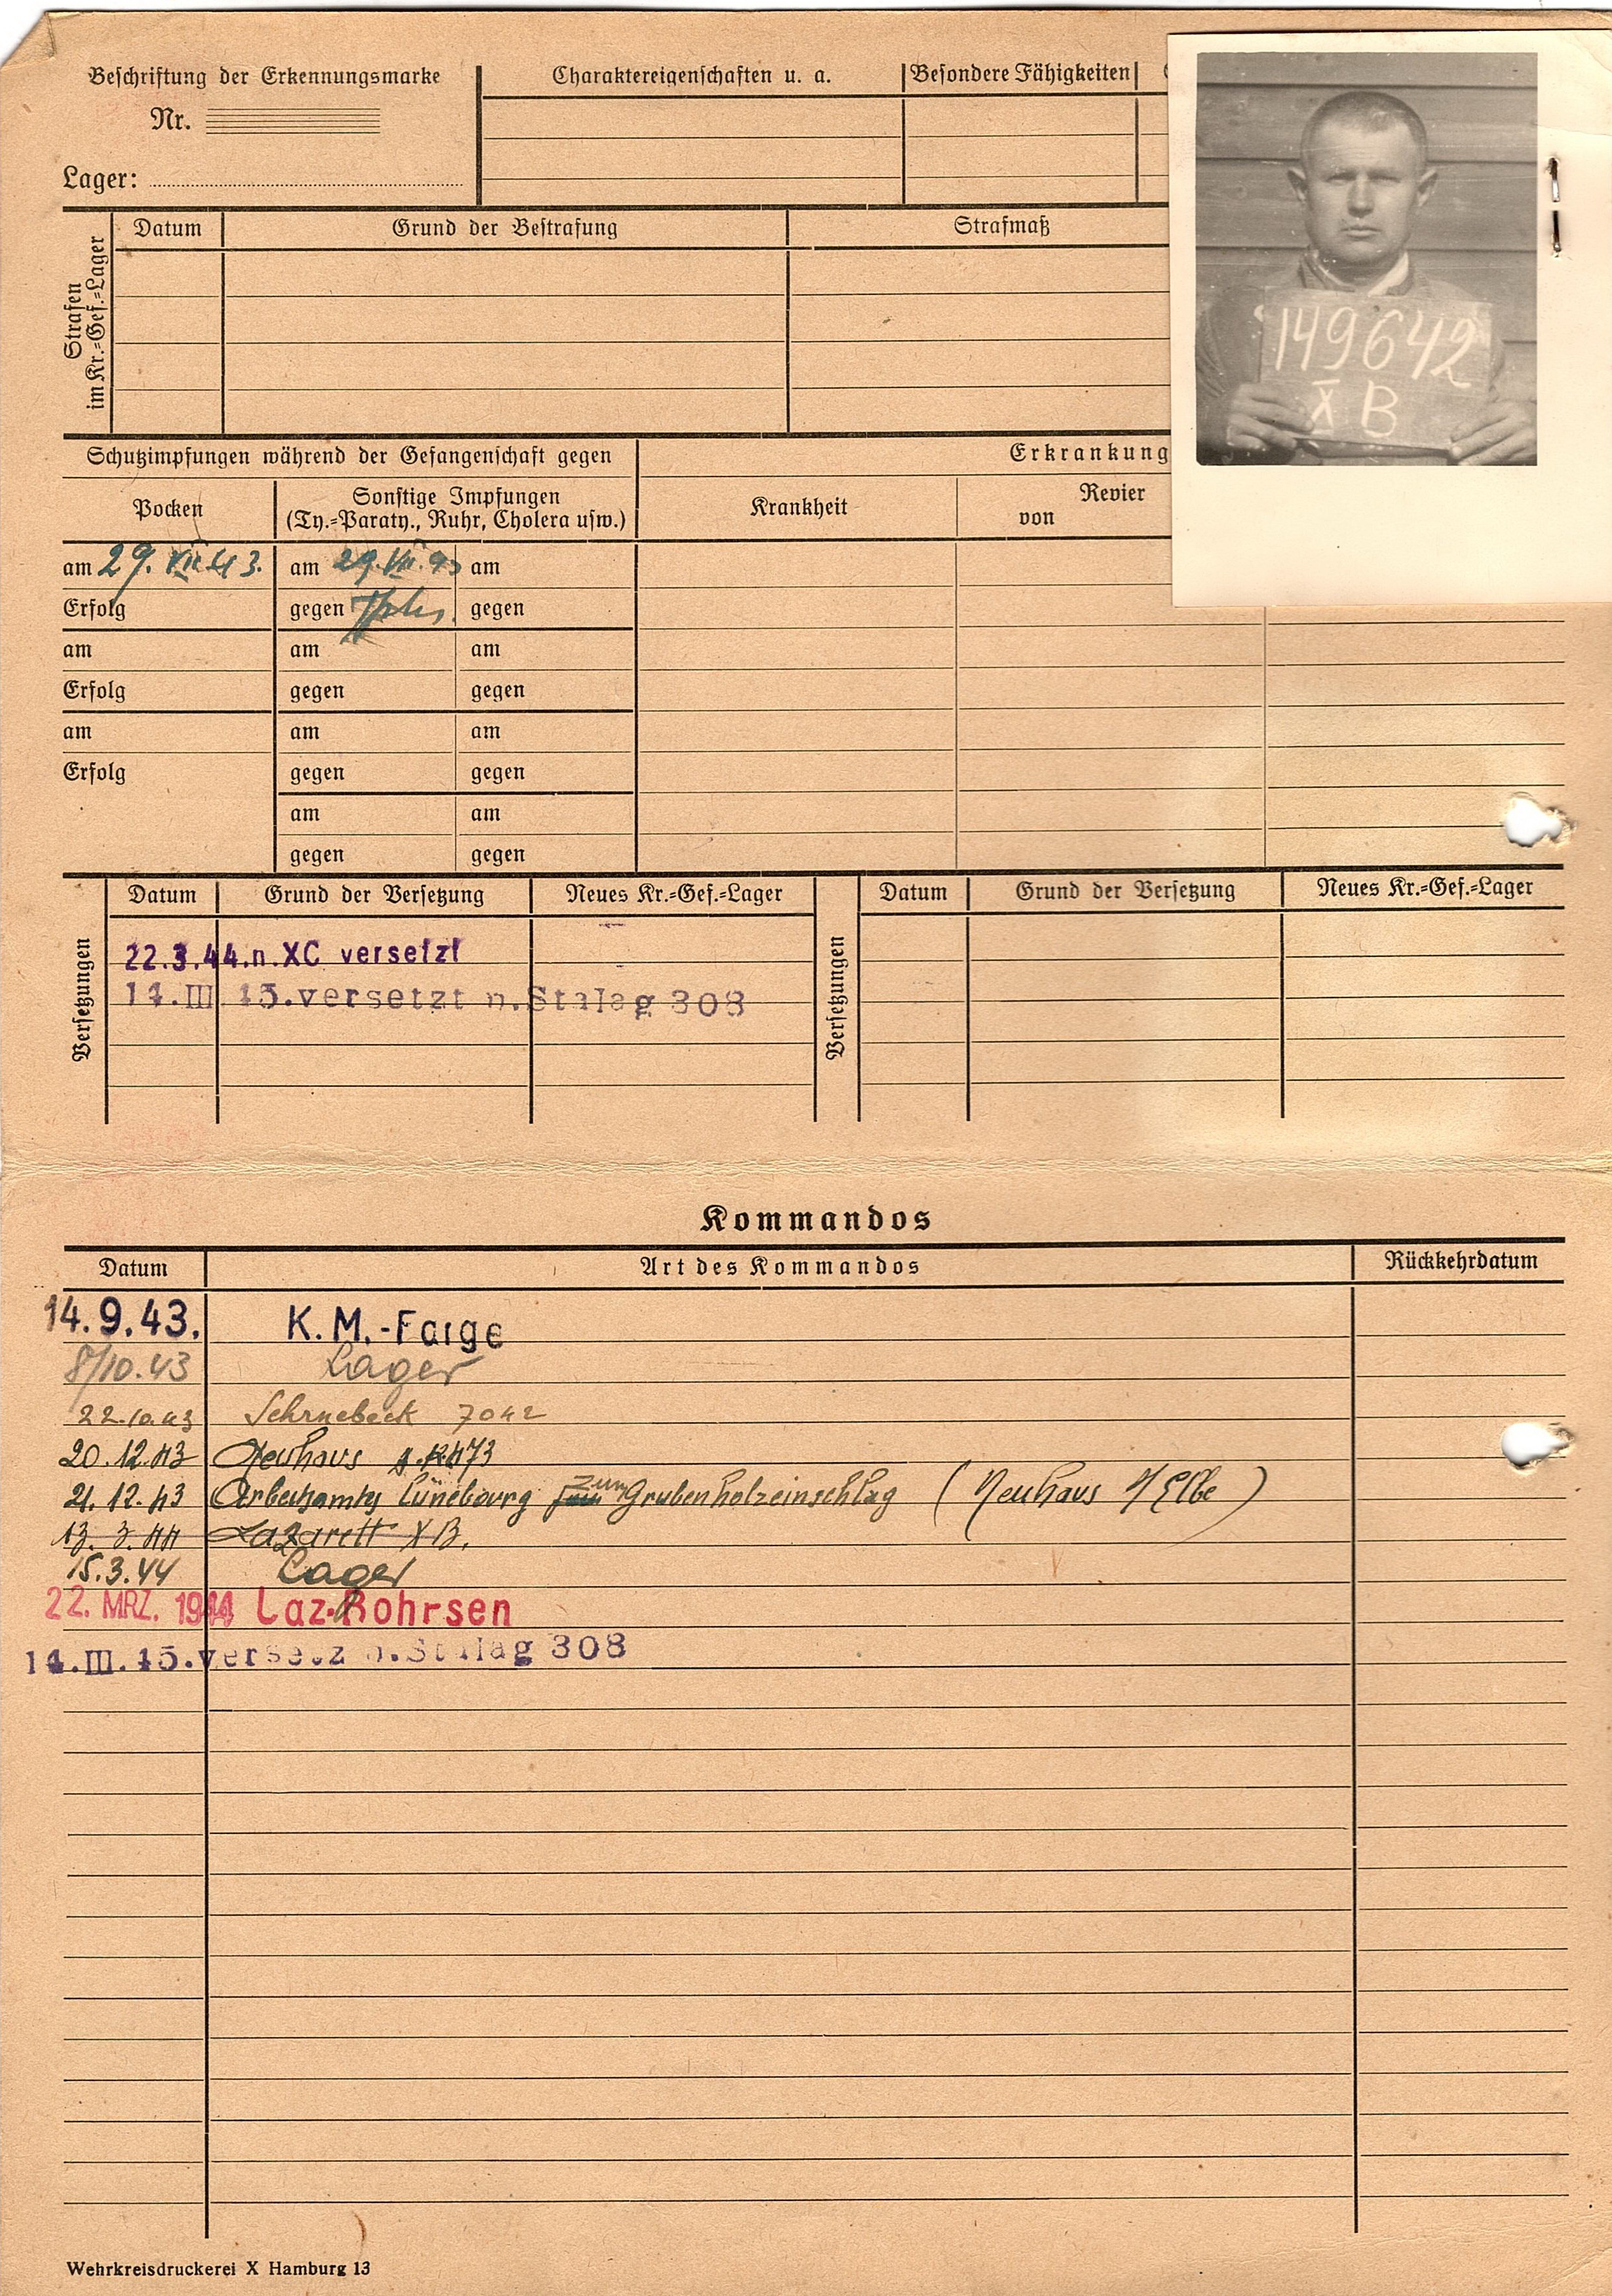 Beschriftung der Erkennungsmarke
Nr.
Lager:
Charaktereigenschaften u. a.
Besondere Fähigkeiten
149642
X B
Strafen
im Kr.=Gef.=Lager
Datum Grund der Bestrafung Strafmaß
Schutzimpfungen während der Gefangenschaft gegen
Erkrankung
Pocken
Sonstige Impfungen
(Ty.=Paraty., Ruhr, Cholera usw.)
Krankheit
Revier
von
am 29. VII. 43. am 29. VII. 43 am
Erfolg gegen gegen
am am am
Erfolg gegen gegen
am am am
Erfolg gegen gegen
am am
gegen gegen
Versetzungen
Datum Grund der Versetzung Neues Kr.=Gef.=Lager
22.3.44.n.XC versetzt
14.III.45.versetzt n.Stalag 308
Versetzungen
Datum Grund der Versetzung Neues Kr.=Gef.=Lager
Kommandos
Datum Art des Kommandos Rückkehrdatum
14.9.43. K.M.-Farge
8/10.43 Lager
22.10.43 7042
20.12.43 Neuhaus
21.12.43 Arbeitsamtes Lüneburg zum Grubenholzeinschlag (Neuhaus / Elbe)
13. 3. 44 Lazarett XB.
15.3.44 Lager
22. MRZ. 1944 Laz.Rohrsen
14.III.45.versetz n.Stalag 308
Wehrkreisdruckerei X Hamburg 13